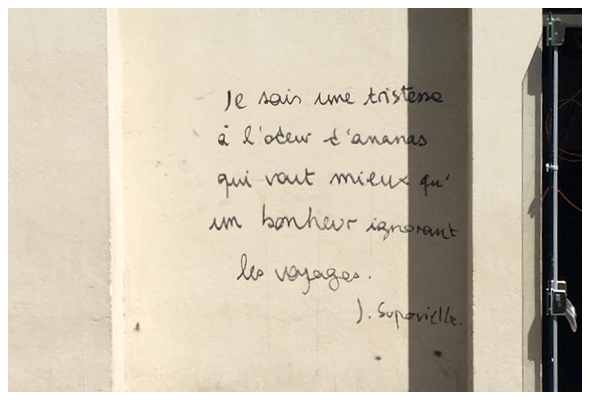 Je sais une tristesse
à l'odeur d'ananas
qui vaut mieux qu'
un bonheur ignorant
les voyages.
J. Supervielle.